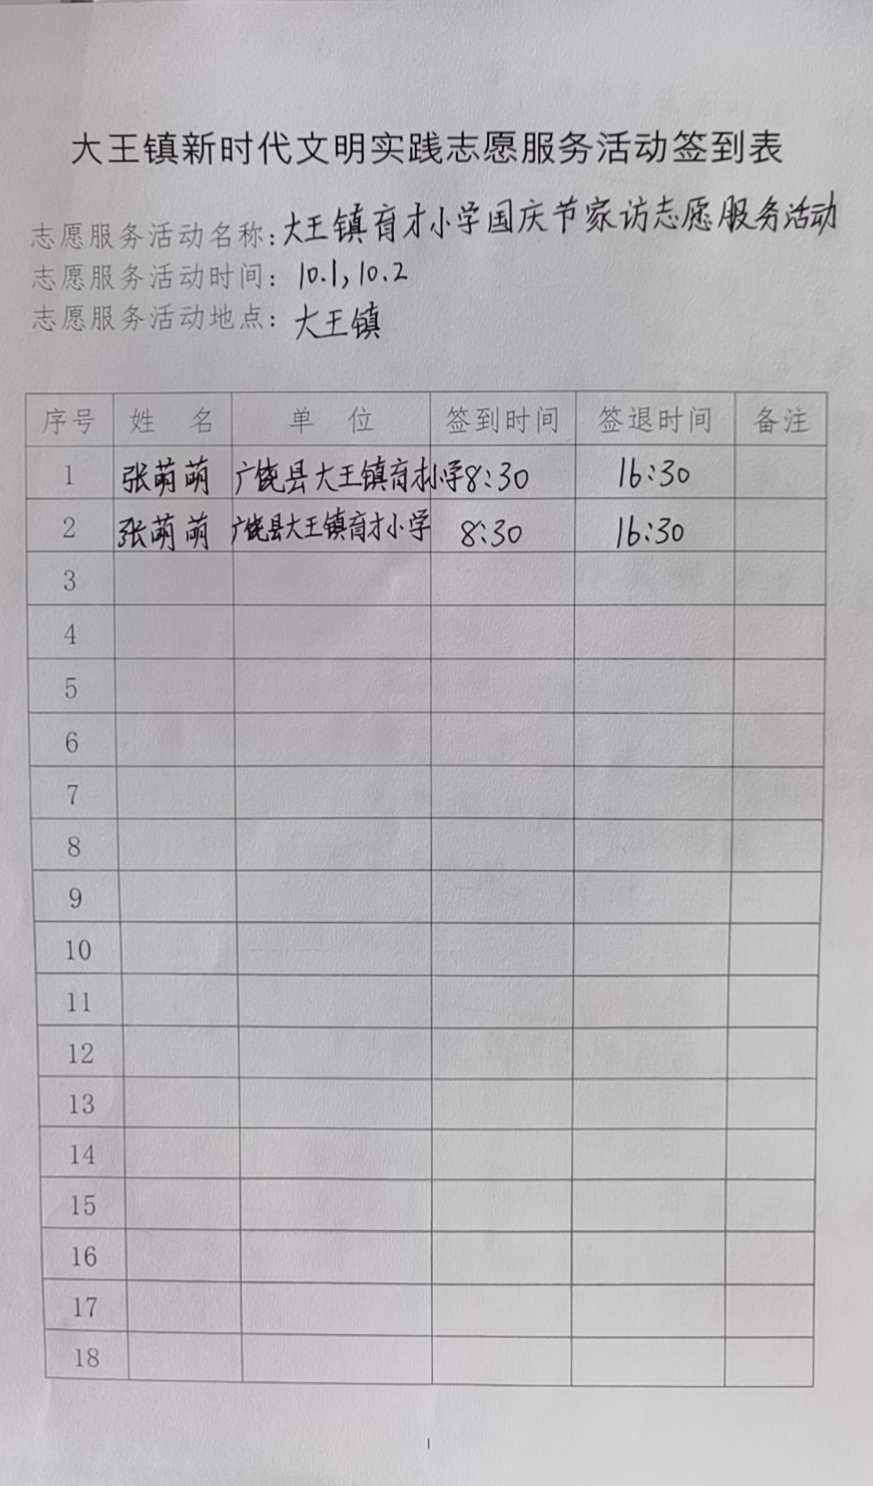 大王镇新时代文明实践志愿服务活动签到表
志愿服务活动名称：大王镇育才小学国庆节家访志愿服务活动
志愿服务活动时间：10.1，10.2
志愿服务活动地点：大王镇
序号 姓 名 单 位 签到时间 签退时间 备注
1 张萌萌 广饶县大王镇育才小学 8：30 16：30
2 张萌萌 广饶县大王镇育才小学 8：30 16：30
3
4
5
6
7
8
9
10
11
12
13
14
15
16
17
18
1